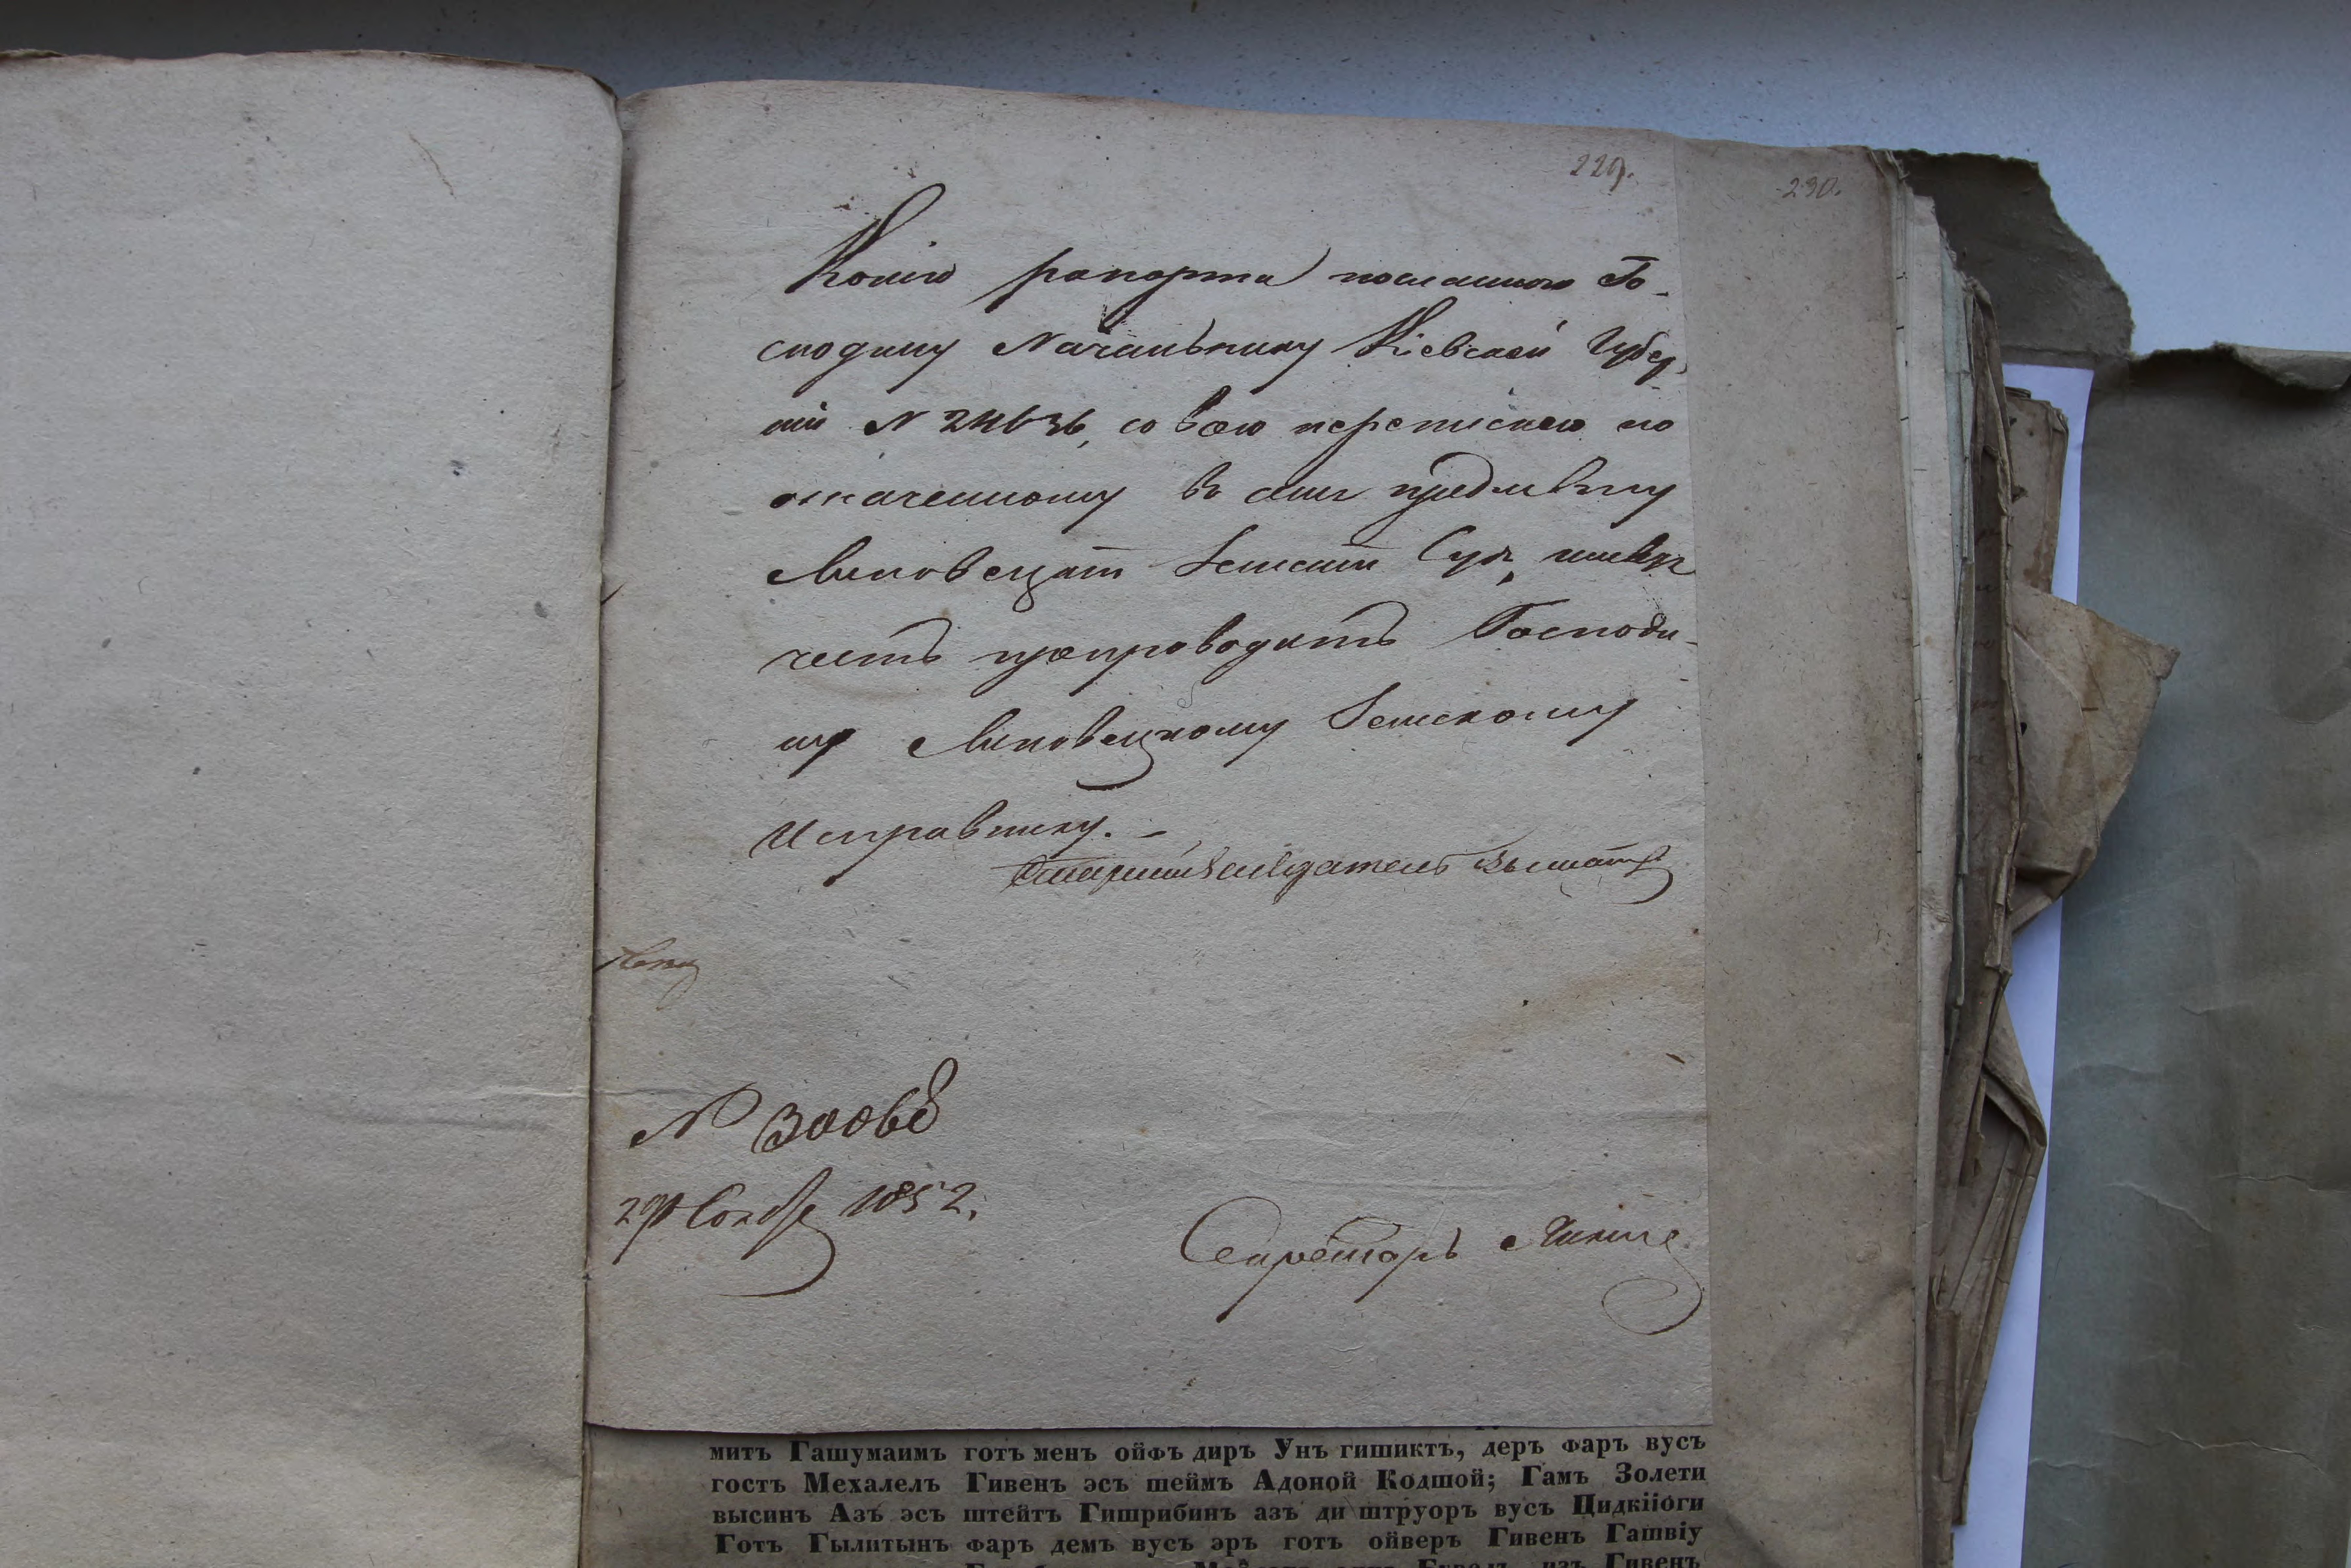 229.
230.
Копію рапорта посланного Го-
сподину Начальнику Кіевской Губер
ніи N 24636, со всею перепискою по
означенному въ нем предмѣту
Липовецкій Земскій Судъ, имѣет
честь препроводить Господи-
ну Липовецкому Земскому
Исправнику. -
Старшій Засѣдатель
N 30068
29 1852.
Секретарь
митъ Гашумаимъ готъ менъ ойфъ диръ Унъ гишиктъ, деръ фаръ вусъ
гостъ Мехалелъ Гивенъ эсъ шеймъ Адоной Кодшой; Гамъ Золети
высинъ Азъ эсъ штейтъ Гишрибинъ азъ ди штруоръ вусъ Цидкіюги
Готъ Гылитынъ фаръ демъ вусъ эръ готъ ойверъ Гивенъ Гашвіу
изъ Гивенъ